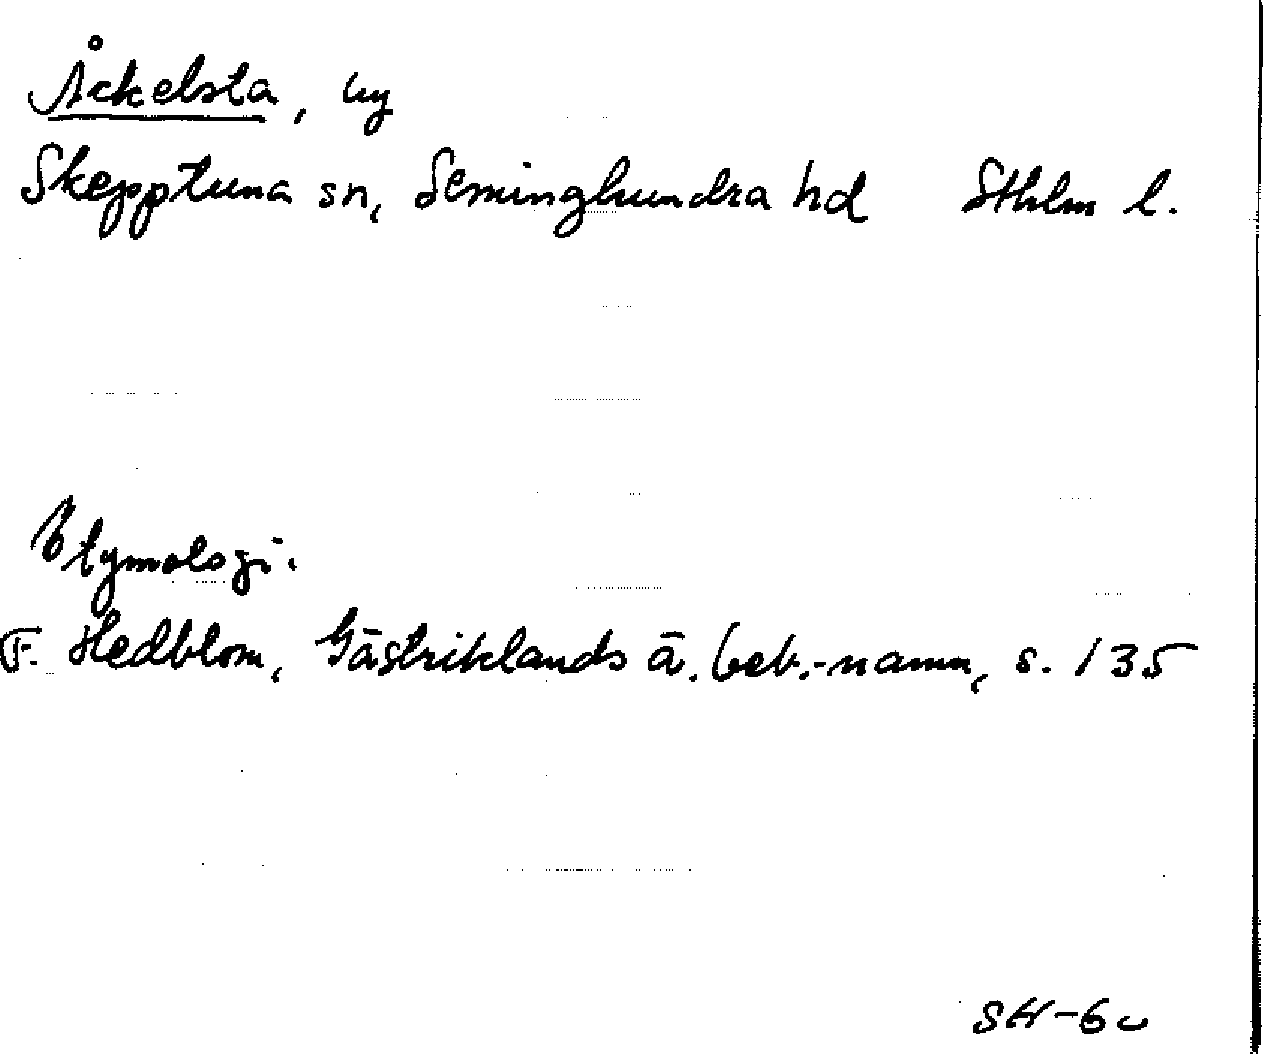 Åckelsta, by
Skepptuna sn, Seminghundra hd Sthlm l.
Etymologi.
F. Hedblom, Gästriklands ä. beb.-namn, s. 135